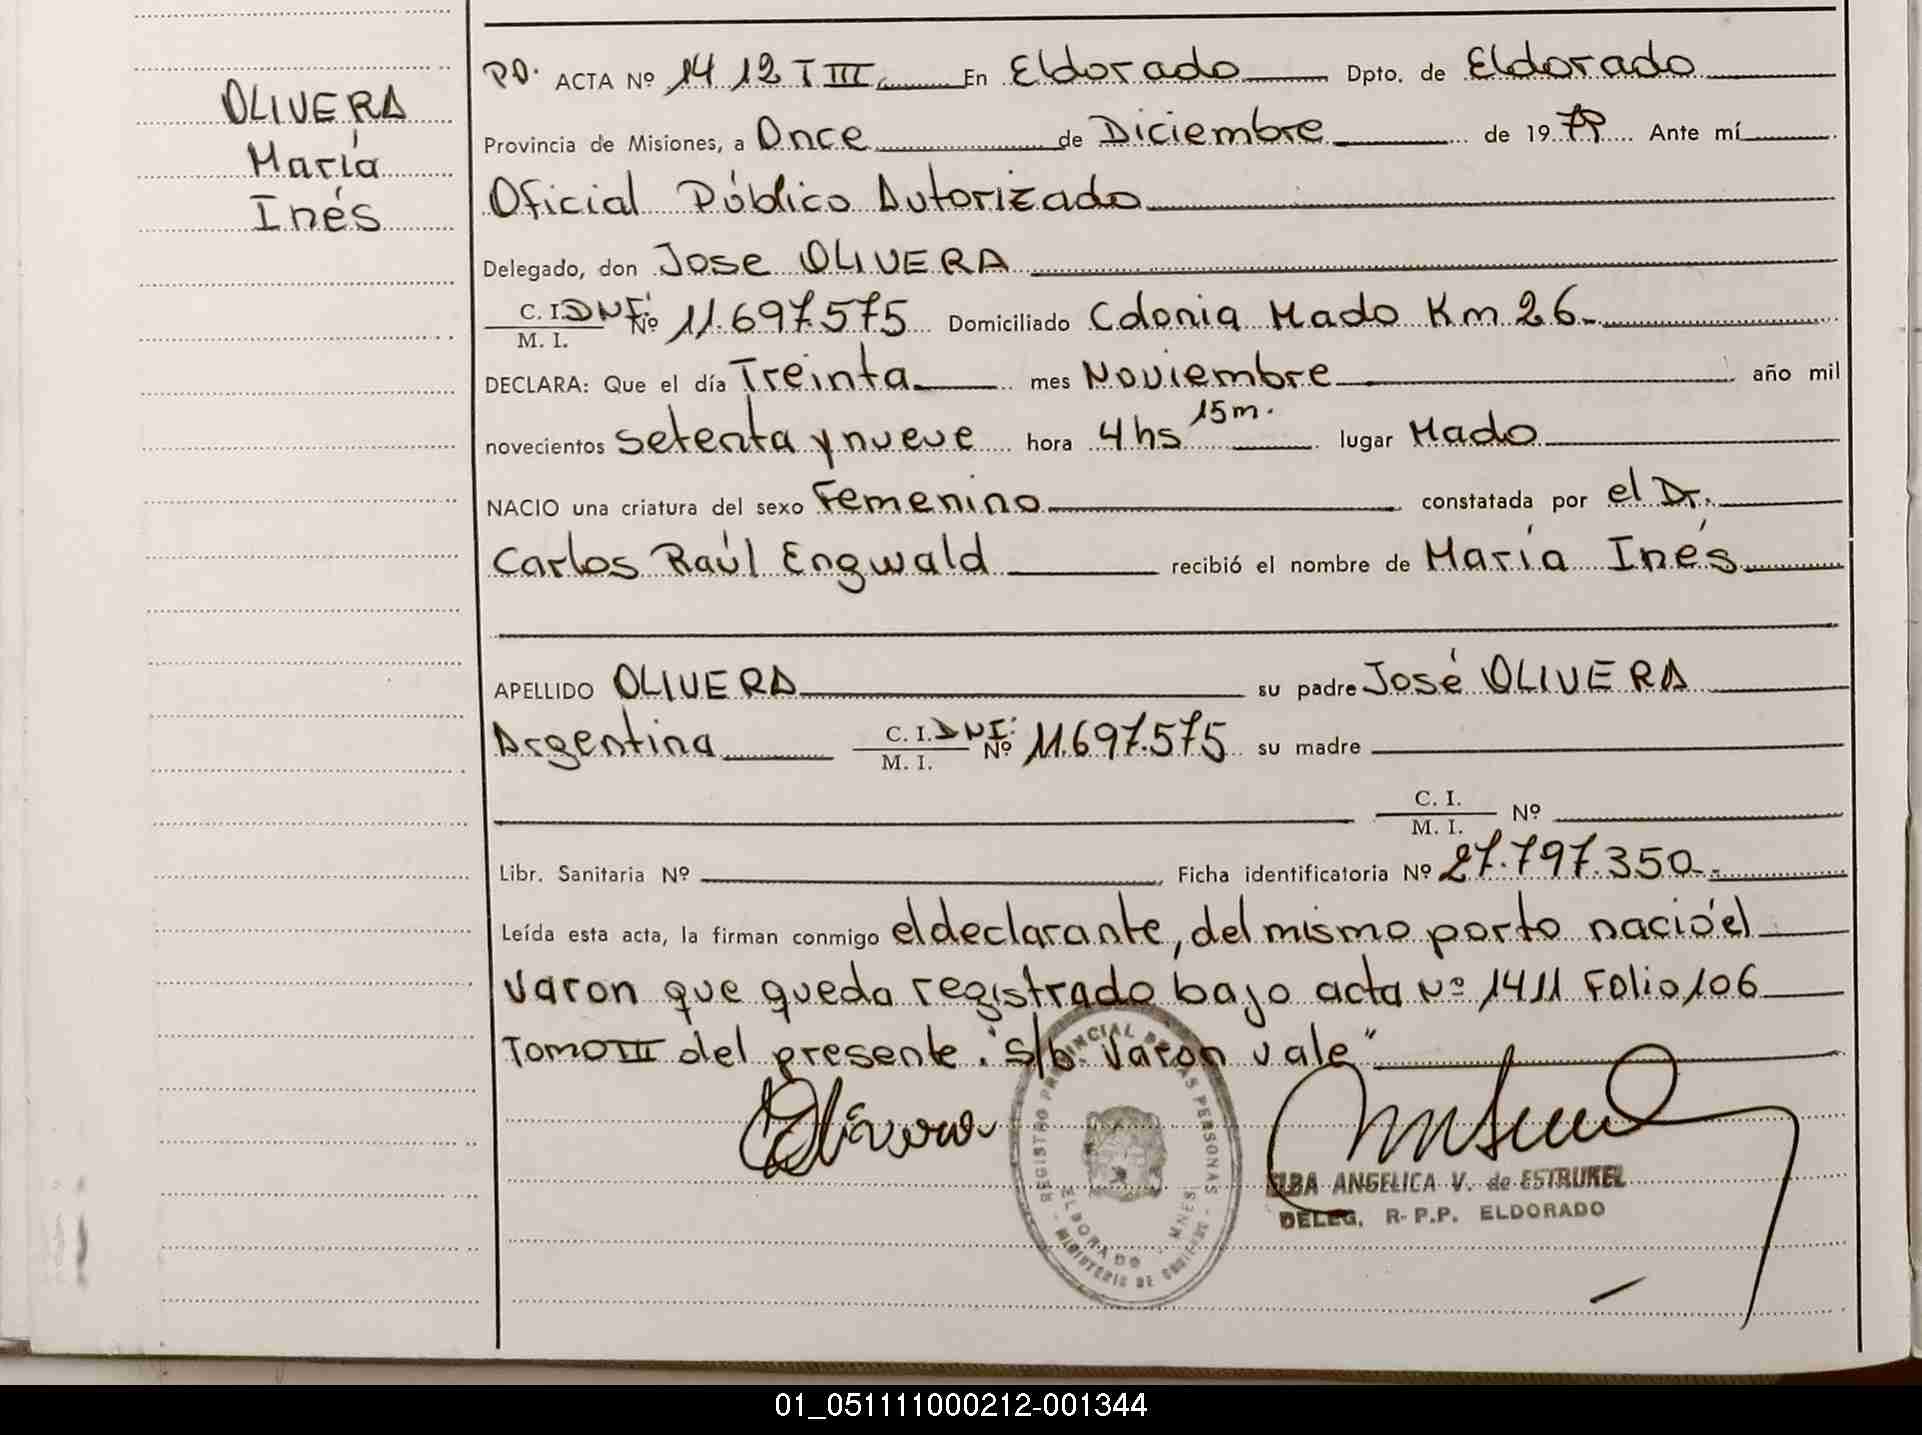 OLIVERA
María
Inés
P.D. ACTA Nº 1412 T III En Eldorado Dpto. de Eldorado
Provincia de Misiones, a Once de Diciembre de 1979 Ante mí
Oficial Público Autorizado
Delegado, don Jose OLIVERA
C. I. DNI. Nº 11.697.575 Domiciliado Colonia Mado Km 26.-
M. I.
DECLARA: Que el día Treinta mes Noviembre año mil
novecientos setenta y nueve hora 4 hs 15 m. lugar Mado
NACIO una criatura del sexo Femenino constatada por el Dr.
Carlos Raúl Engwald recibió el nombre de María Inés
APELLIDO OLIVERA su padre José OLIVERA
Argentina C. I. DNI: Nº 11.697.575 su madre
M. I.
C. I. Nº
M. I.
Libr. Sanitaria Nº Ficha identificatoria Nº 27.797.350.-
Leída esta acta, la firman conmigo el declarante, del mismo porto nació el
varon que queda registrado bajo acta Nº 1411 Folio 106
Tomo III del presente. "S/b. Varon vale"
Olivera
REGISTRO PROVINCIAL DE LAS PERSONAS
ELDORADO - MNES
MINISTERIO DE
ELBA ANGELICA V. de ESTRUKEL
DELEG. R. P.P. ELDORADO
01_051111000212-001344